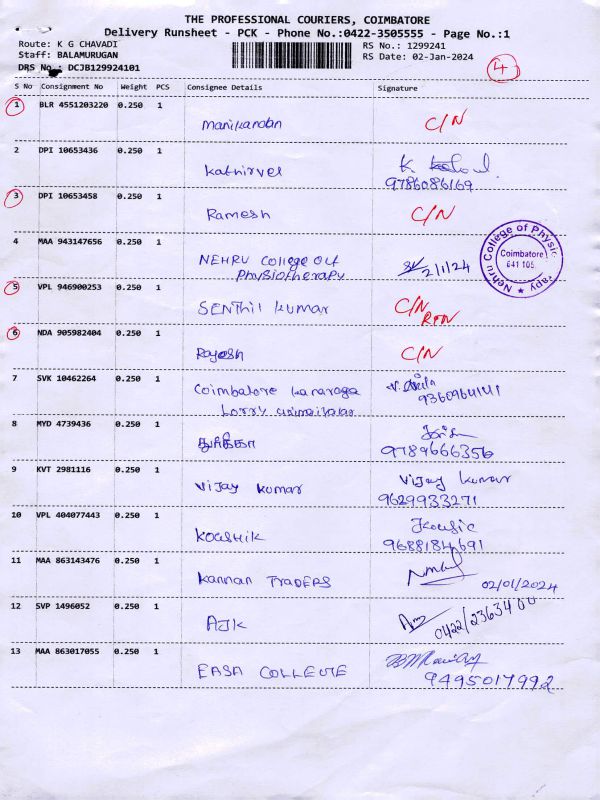 THE PROFESSIONAL COURIERS, COIMBATORE
Delivery Runsheet - PCK - Phone No.:0422-3505555 - Page No.:1
Route: K G CHAVADI
RS No.: 1299241
Staff: BALAMURUGAN
RS Date: 02-Jan-2024
DRS No.: DCJB129924101
4
S No Consignment No Weight PCS Consignee Details Signature
1 BLR 4551203220 0.250 1
Manikandan C/N
2 DPI 10653436 0.250 1
Kathirvel K.
9786086169
3 DPI 10653458 0.250 1
Ramesh C/N
4 MAA 943147656 0.250 1
NEHRU College Of 2/1/24
Physiotherapy
Nehru College of Physiotherapy
Coimbatore
641 105
5 VPL 946900253 0.250 1
SENthil kumar C/N
RTN
6 NDA 905982404 0.250 1
Rajesh C/N
7 SVK 10462264 0.250 1
Coimbatore
9360964141
Lorry
8 MYD 4739436 0.250 1
9789666356
9 KVT 2981116 0.250 1
Vijay kumar Vijay kumar
9629933271
10 VPL 404077443 0.250 1
KOUSHIK Kousic
9688184691
11 MAA 863143476 0.250 1
Kannan TRADERS 02/01/2024
12 SVP 1496052 0.250 1
AJK 0422/2363400
13 MAA 863017055 0.250 1
EASA COLLEGE
9495017992